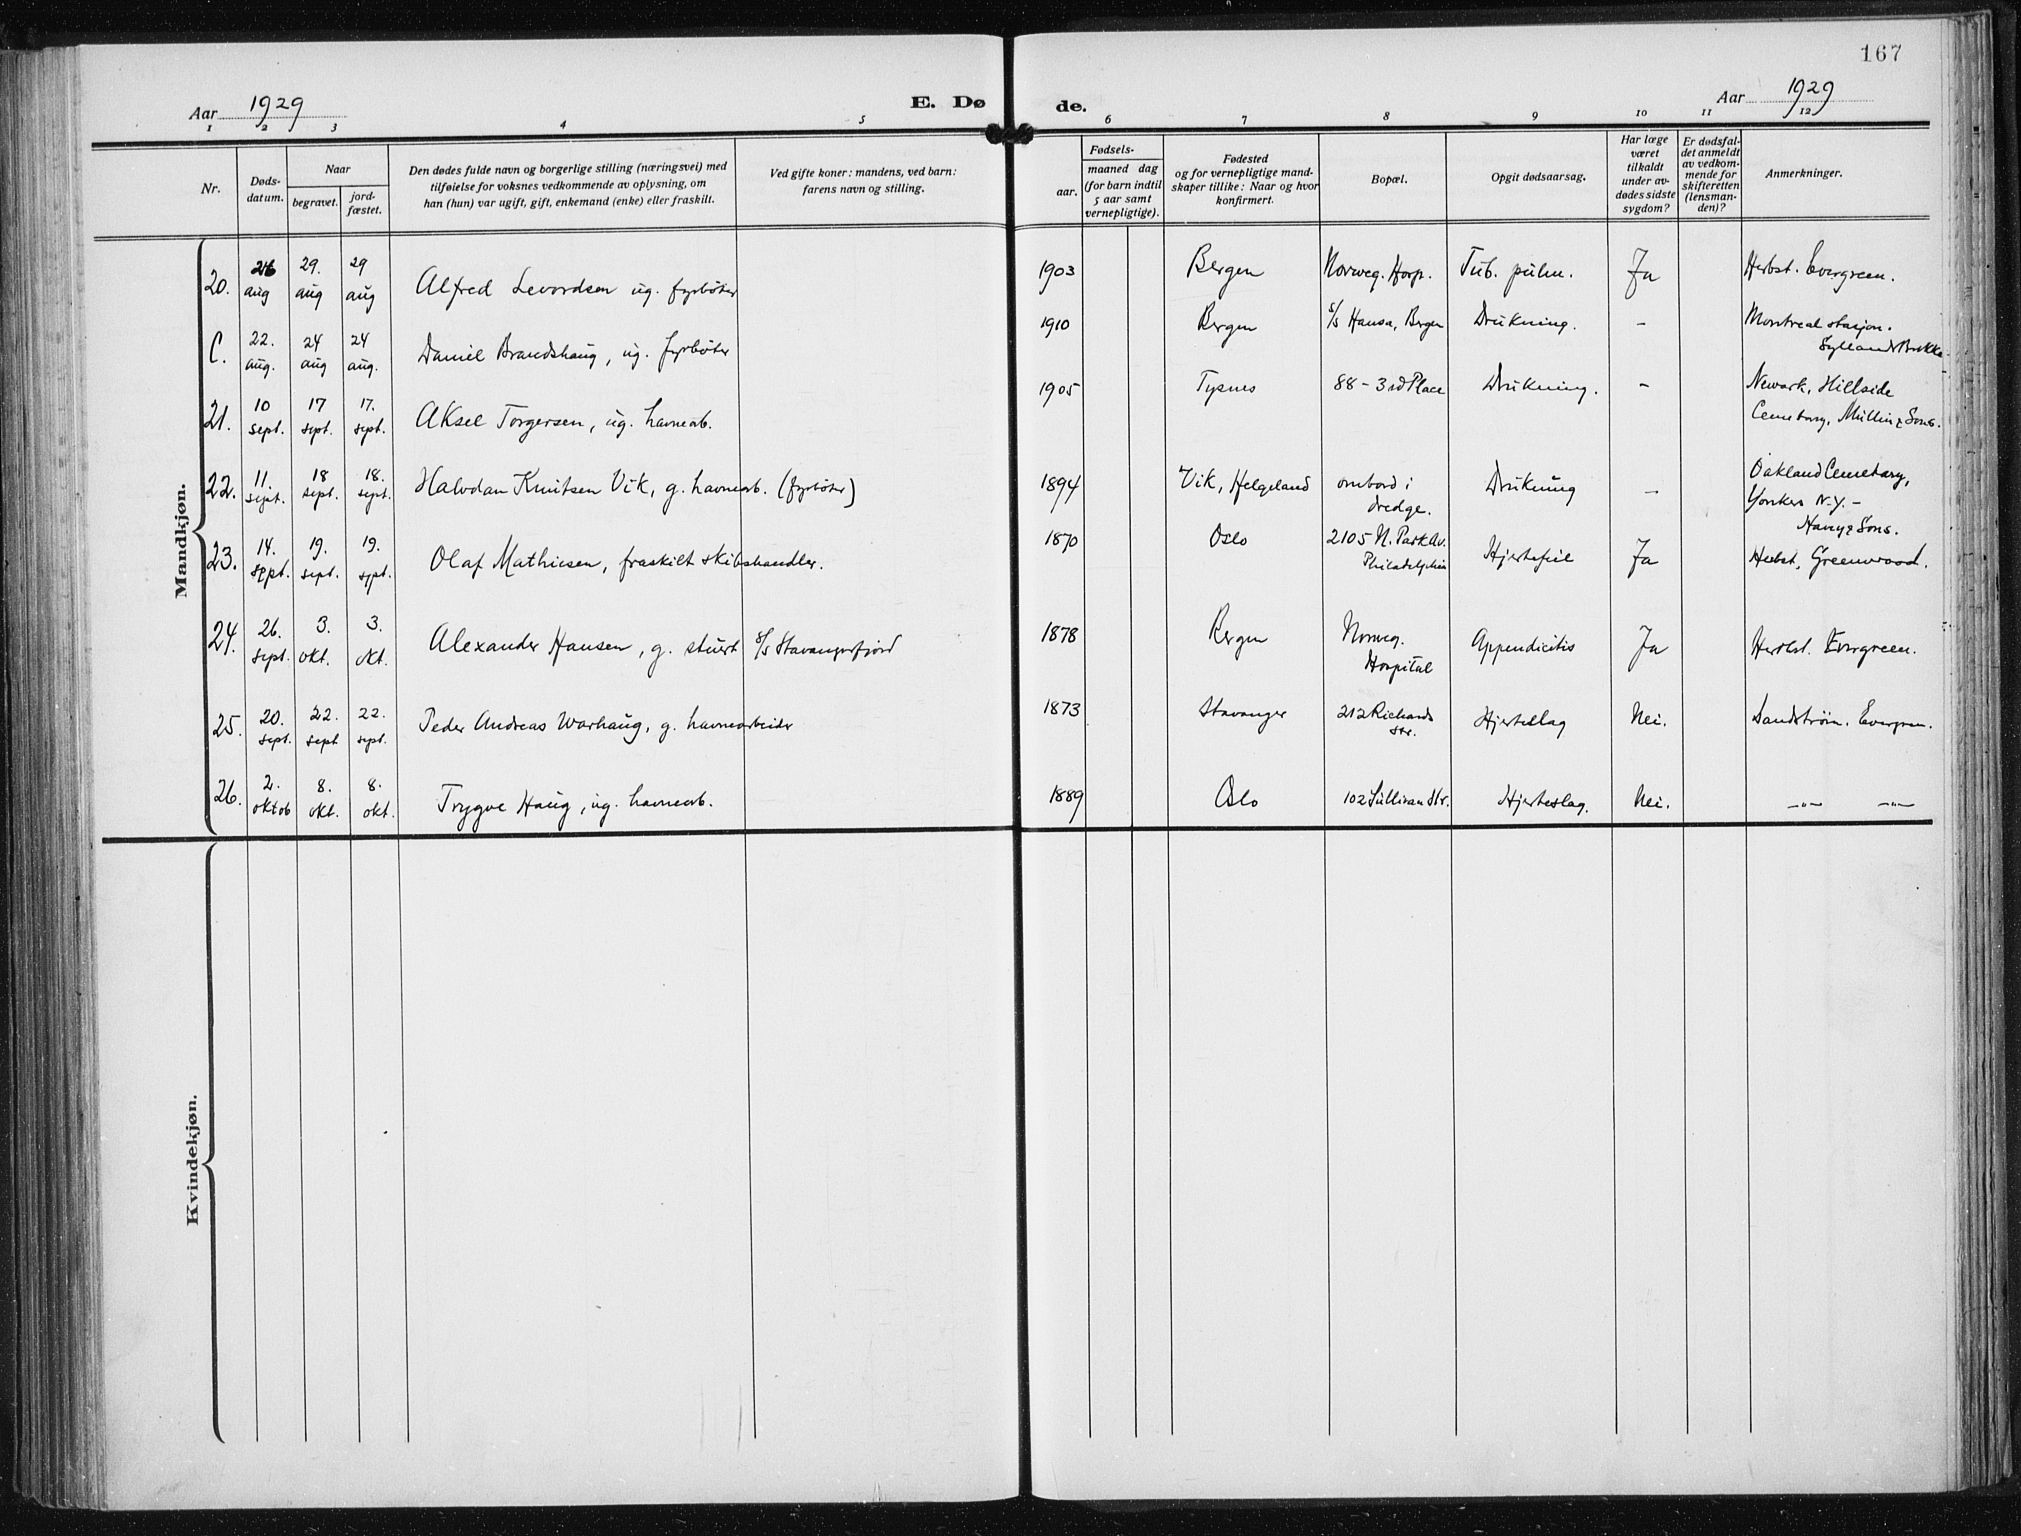 167
Aar 1929
E. Dø de.
Aar 1929
1 2 3 4 5 6 7 8 9 10 11 12
Nr.
Døds-
datum.
Naar
begravet.
jord-
fæstet.
Den dødes fulde navn og borgerlige stilling (næringsvei) med
tilføielse for voksnes vedkommende av oplysning, om
han (hun) var ugift, gift, enkemand (enke) eller fraskilt.
Ved gifte koner: mandens, ved barn:
farens navn og stilling.
Fødsels-
aar.
maaned dag
(for barn indtil
5 aar samt
vernepligtige).
Fødested
og for vernepligtige mand-
skaper tillike: Naar og hvor
konfirmert.
Bopæl.
Opgit dødsaarsag.
Har læge
været
tilkaldt
under av-
dødes sidste
sygdom?
Er dødsfal-
det anmeldt
av vedkom-
mende for
skifteretten
(lensman-
den)?
Anmerkninger.
Mandkjøn.
20. 26 aug 29. aug 29 aug Alfred Levordsen ug. fyrbøter 1903 Bergen Norweg. Hosp. Tub. pulm. Ja Herbst. Evergreen.
C. 22. aug. 24 aug 24 aug. Daniel Brandshaug, ug. fyrbøter 1910 Bergen s/s Hansa, Bergen Drukning. - Montreal stasjon.
21. 10 sept. 17 sept. 17. sept. Aksel Torgersen, ug. havnearb. 1905 Tysnes 88 - 3rd Place Drukning. - Newark, Hillside
Cemetary, Mullin & Sons.
22. 11. sept. 18 sept. 18. sept. Halvdan Knutsen Vik, g. havnearb. (fyrbøter) 1894 Vik, Helgeland ombord i
dredge. Drukning - Oakland Cemetary,
Yonkers N.Y. -
& Sons.
23. 14. sept. 19. sept. 19. sept. Olaf Mathiesen, fraskilt skibshandler. 1870 Oslo 2105 N. Park Av.
Philadelphia Hjertefeil Ja Herbst, Greenwood.
24. 26. sept. 3. okt. 3. okt. Alexander Hansen, g. stuert s/s Stavangerfjord 1878 Bergen Norweg.
Hospital Appendicitis Ja Herbst. Evergreen.
25. 20. sept. 22. sept 22. sept. Peder Andreas Warhaug, g. havnearbeider 1873 Stavanger 212 Richards
Str. Hjerteslag Nei. Sandstrøm. Evergreen.
26. 2. oktob 8. okt. 8. okt. Trygve Haug, ug. havnearb. 1889 Oslo 102 Sullivan Str. Hjerteslag. Nei. -"- -"-
Kvindekjøn.